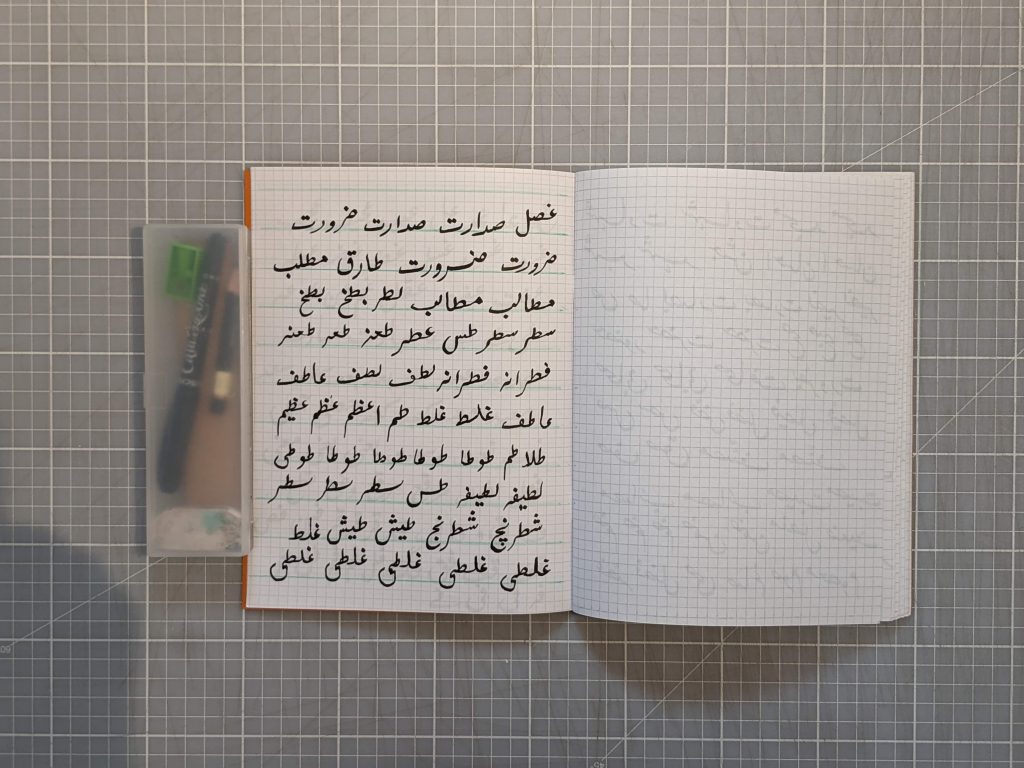 غصل صدارت صدارت ضرورت
ضرورت ضرورت طارق مطلب
مطالب مطالب لطر بطخ بطخ
سطر سطر طس عطر طعنہ طعنہ طعنہ
فطرانہ فطرانہ لطف لطف عاطف
عاطف غلط غلط طم اعظم عظم عظیم
طلاطم طوطا طوطا طوطا طوطا طوطی
لطیفہ لطیفہ طس سطر سطر سطر
شطرنج شطرنج طیش طیش غلط
غلطی غلطی غلطی غلطی غلطی